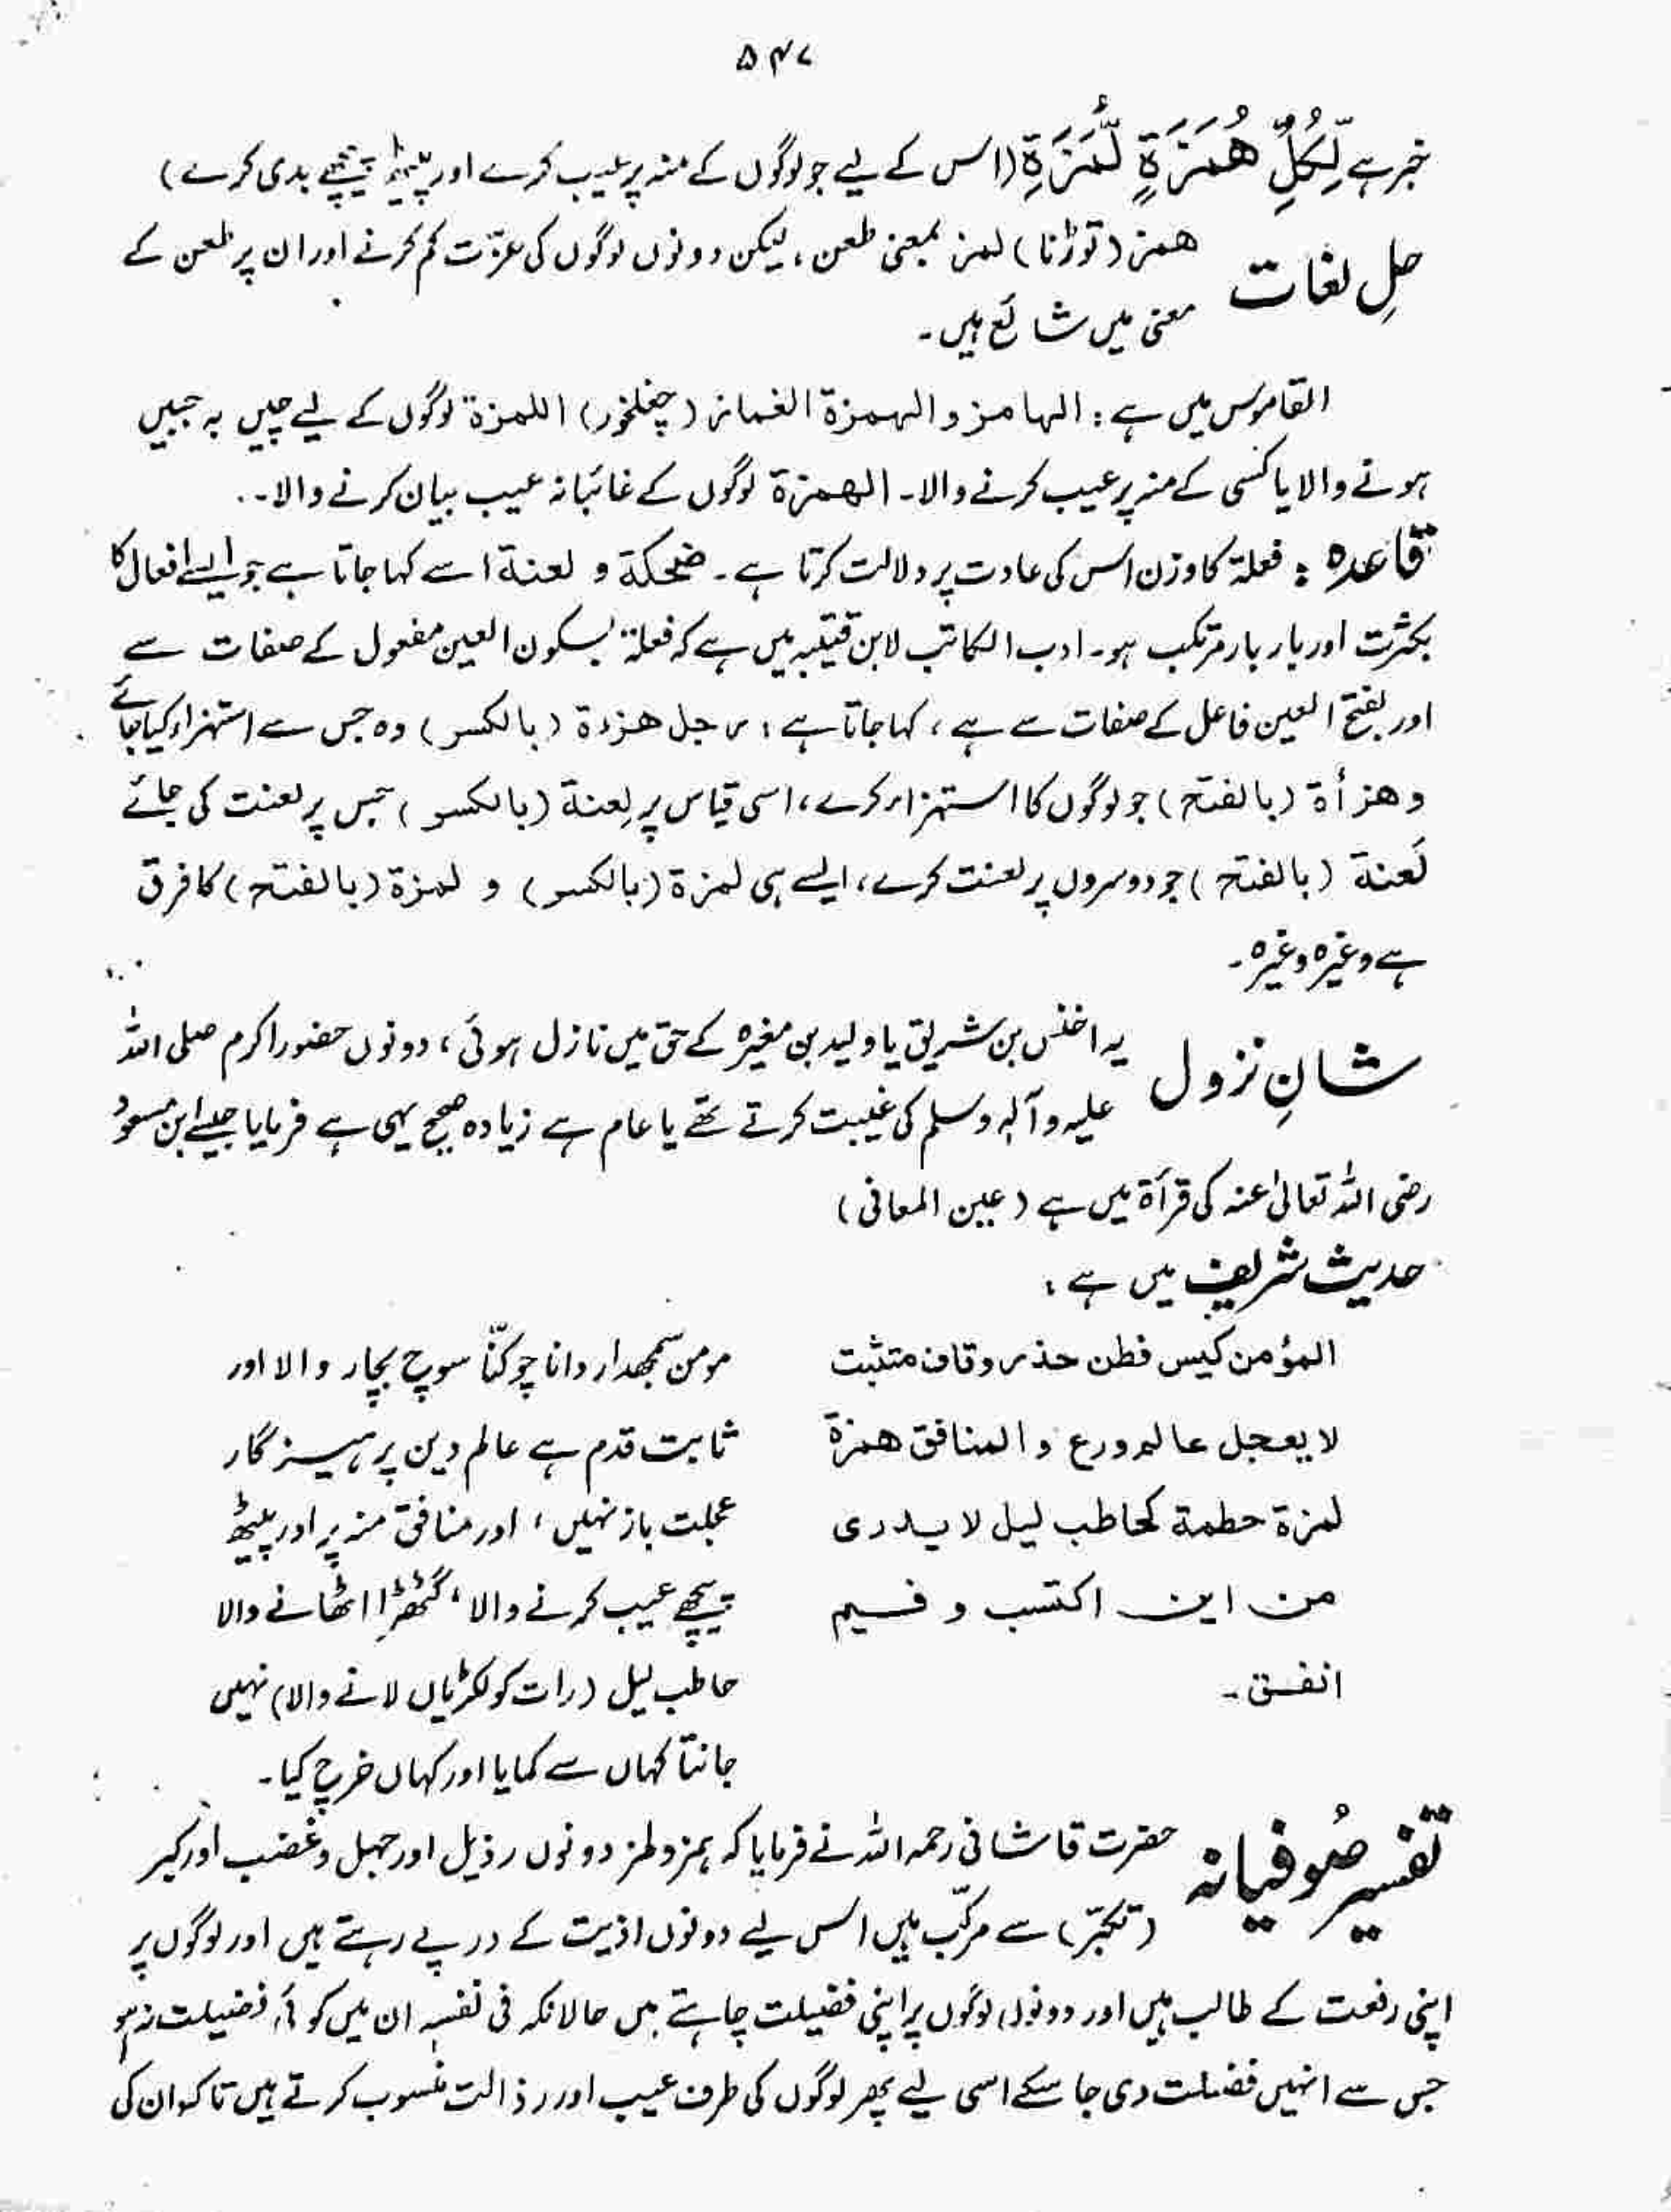 ۵۴۷
خبر ہے لِّكُلِّ هُمَزَةٍ لُّمَزَةِ (اس کے لیے جو لوگوں کے منہ پر عیب کرے اور پیٹھ پیچھے بدی کرے)
حلِ لغات ھمز (توڑنا) لمز بمعنی طعن، لیکن دونوں لوگوں کی عزّت کم کرنے اور ان پر طعن کے
معنی میں شائع ہیں۔
القاموس میں ہے : الهامز و الهمزة الغماز (چغلخور) اللمزة لوگوں کے لیے چیں بہ جبیں
ہونے والا یا کسی کے منہ پر عیب کرنے والا۔ الھمزة لوگوں کے غائبانہ عیب بیان کرنے والا۔
قاعدہ : فعلة کا وزن اس کی عادت پر دلالت کرتا ہے۔ ضحکة و لعنة اسے کہا جاتا ہے جو ایسے افعال کا
بکثرت اور بار بار مرتکب ہو۔ ادب الکاتب لابن قتیبہ میں ہے کہ فعلة بسکون العین مفعول کے صفات سے
اور بفتح العین فاعل کے صفات سے ہے، کہا جاتا ہے : رجل هزءة (بالکسر) وہ جس سے استہزاء کیا جائے
و هزأة (بالفتح) جو لوگوں کا استہزاء کرے، اسی قیاس پر لِعنة (بالکسر) جس پر لعنت کی جائے
لَعنة (بالفتح) جو دوسروں پر لعنت کرے، ایسے ہی لمزة (بالکسر) و لمزة (بالفتح) کا فرق
ہے وغیرہ وغیرہ۔
شانِ نزول یہ اخنس بن شریق یا ولید بن مغیرہ کے حق میں نازل ہوئی، دونوں حضور اکرم صلی اللہ
علیہ وآلہ وسلم کی غیبت کرتے تھے یا عام ہے زیادہ صحیح یہی ہے فرمایا جیسے ابن مسعودؓ
رضی اللہ تعالیٰ عنہ کی قرآۃ میں ہے (عین المعانی)
حدیث شریف میں ہے :
المؤمن كيس فطن حذر وقاف متثبت
لا يعجل عالم ورع و المنافق همزة
لمزة حطمة كحاطب ليل لا يدرى
من این اكتسب و فیم
انفق۔
مومن سمجھدار دانا چوکنّا سوچ بچار والا اور
ثابت قدم ہے عالم دین پرہیزگار
عجلت باز نہیں، اور منافق منہ پر اور پیٹھ
پیچھے عیب کرنے والا، گٹھڑا اٹھانے والا
حاطب لیل (رات کو لکڑیاں لانے والا) نہیں
جانتا کہاں سے کمایا اور کہاں خرچ کیا۔
تفسیر صُوفیانہ حضرت قاشانی رحمہ اللہ نے فرمایا کہ ہمز و لمز دونوں رذیل اور جہل و غضب اور کبر
(تکبّر) سے مرکّب ہیں اس لیے دونوں اذیت کے درپے رہتے ہیں اور لوگوں پر
اپنی رفعت کے طالب ہیں اور دونوں لوگوں پر اپنی فضیلت چاہتے ہیں حالانکہ فی نفسہٖ ان میں کوئی فضیلت نہ ہو
جس سے انہیں فضلت دی جا سکے اسی لیے پھر لوگوں کی طرف عیب اور رذالت منسوب کرتے ہیں تاکہ ان کی